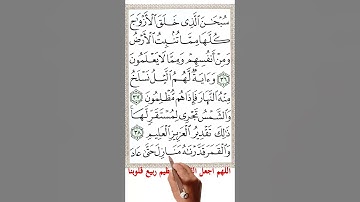 سُبْحَـٰنَ ٱلَّذِى خَلَقَ ٱلْأَزْوَٰجَ
كُلَّهَا مِمَّا تُنۢبِتُ ٱلْأَرْضُ
وَمِنْ أَنفُسِهِمْ وَمِمَّا لَا يَعْلَمُونَ
﴿٣٦﴾ وَءَايَةٌ لَّهُمُ ٱلَّيْلُ نَسْلَخُ
مِنْهُ ٱلنَّهَارَ فَإِذَا هُم مُّظْلِمُونَ ﴿٣٧﴾
وَٱلشَّمْسُ تَجْرِى لِمُسْتَقَرٍّ لَّهَا
ذَٰلِكَ تَقْدِيرُ ٱلْعَزِيزِ ٱلْعَلِيمِ ﴿٣٨﴾
وَٱلْقَمَرَ قَدَّرْنَـٰهُ مَنَازِلَ حَتَّىٰ عَادَ
اللهم اجعل ربيع قلوبنا